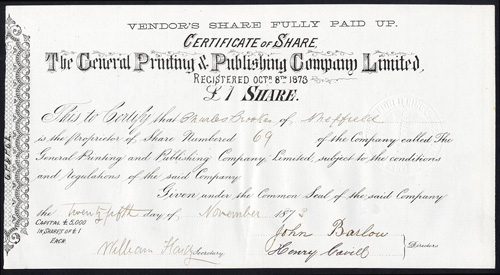 VENDOR'S SHARE FULLY PAID UP.
CERTIFICATE OF SHARE,
The General Printing & Publishing Company Limited,
REGISTERED OCTR. 8TH 1873
£1 SHARE.
This is to Certify that Charles Crookes of, Sheffield
is the Proprietor of Share Numbered 69 of the Company called The
General Printing and Publishing Company, Limited, subject to the conditions
and Regulations of the said Company
Given under the Common Seal of the said Company
the Twenty fifth day of November 1873
CAPITAL £5,000
IN SHARES OF £1
EACH.
William Secretary
John Barlow
Henry Cavill
Directors